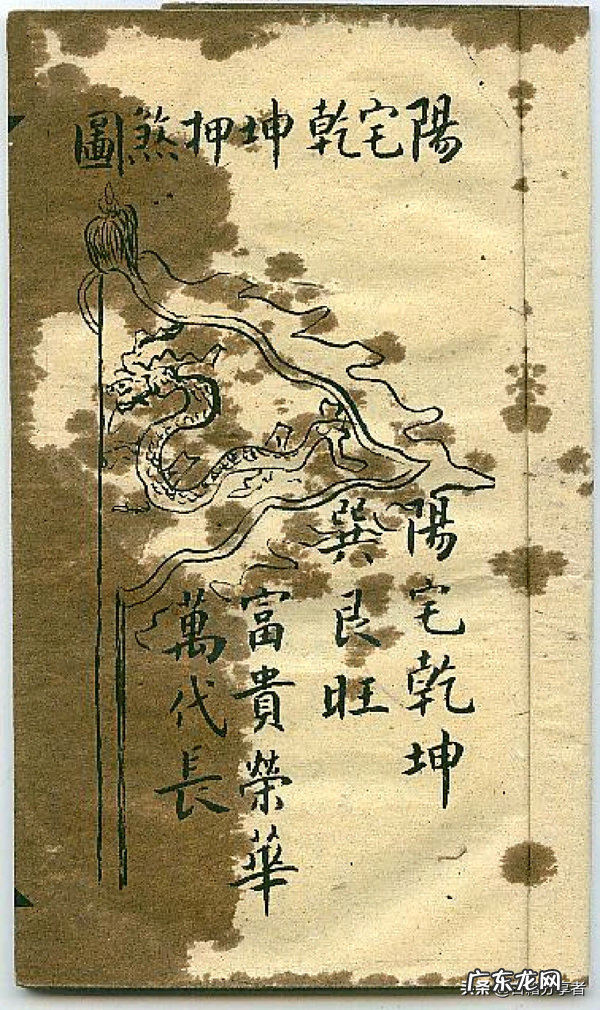 陽宅乾坤押煞圖
陽宅乾坤
巽艮旺
富貴榮華
萬代長
广东龙网